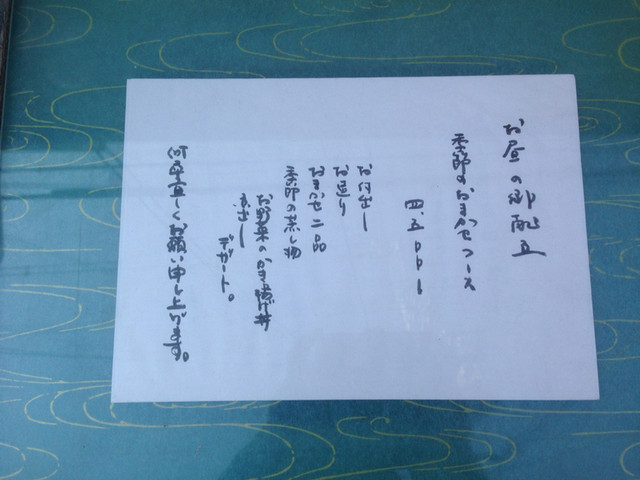 お昼の御献立
季節のおまかせコース
四、五〇〇−
お付出し
お造り
おまかせ二品
季節の蒸し物
お野菜のかき揚げ丼
赤出し
デザート。
何卒宜しくお願い申し上げます。